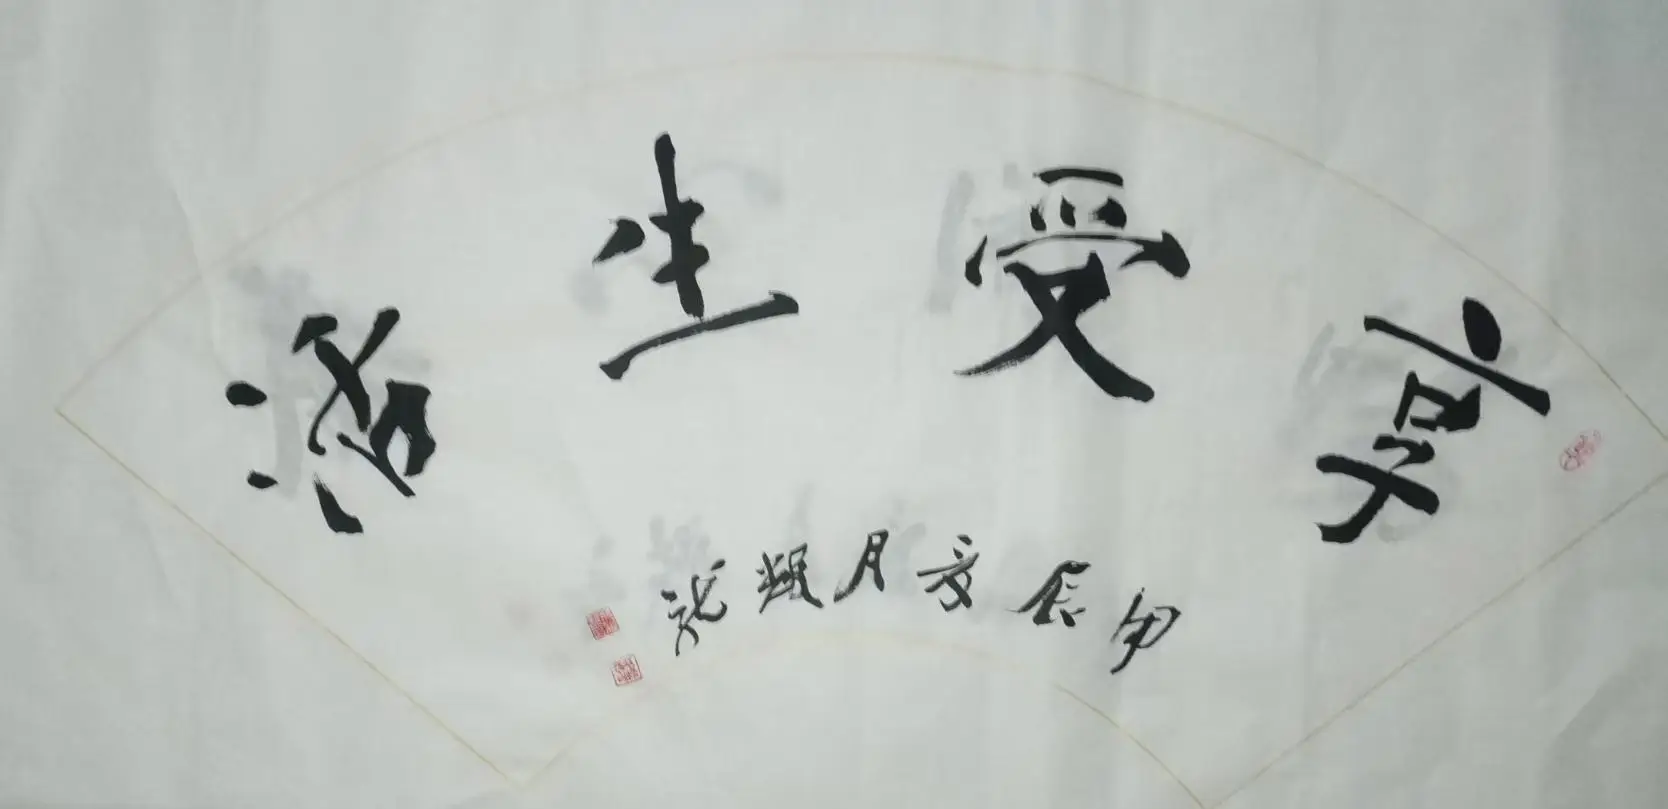 享受生活
甲辰夏月耀龙